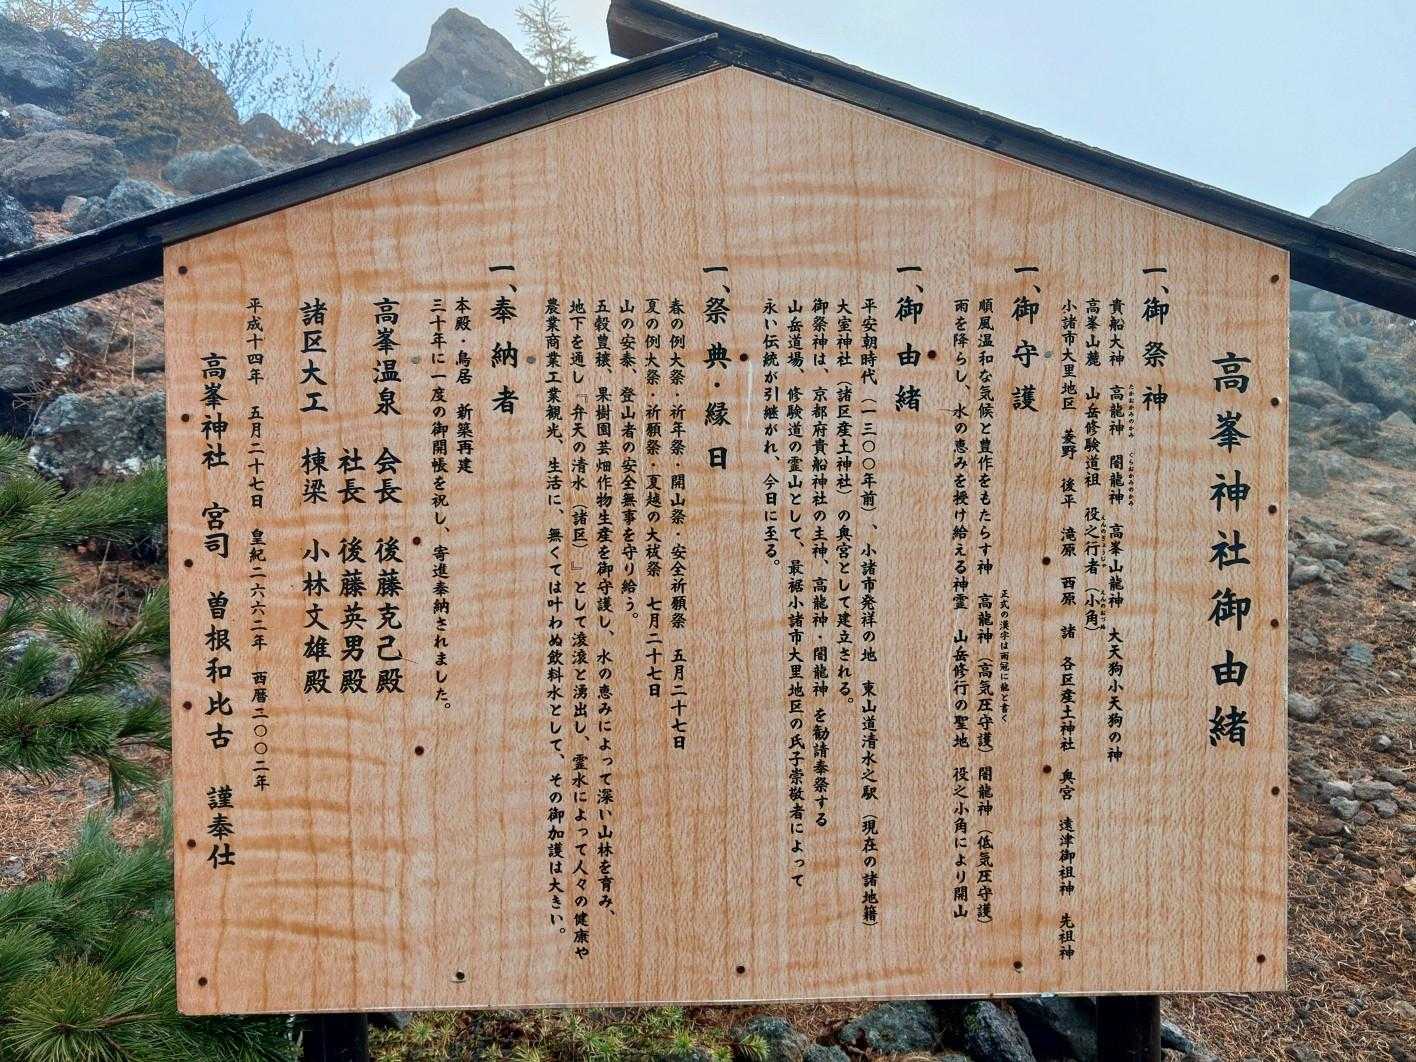 高峯神社御由緒
一、御祭神
貴船大神 高龍神 闇龍神 高峯山龍神 大天狗小天狗の神
たかおかみのかみ くらおかみのかみ
高峯山麓 山岳修験道祖 役之行者(小角)
えんのぎょうじゃ えんのおづぬ
小諸市大里地区 菱野 後平 滝原 西原 諸 各区産土神社 奥宮 遠津御祖神 先祖神
一、御守護
順風温和な気候と豊作をもたらす神 高龍神(高気圧守護)闇龍神(低気圧守護)
正式の漢字は雨冠に龍と書く
雨を降らし、水の恵みを授け給える神霊 山岳修行の聖地 役之小角により開山
一、御由緒
平安朝時代(一三〇〇年前)、小諸市発祥の地 東山道清水之駅(現在の諸地籍)
大室神社(諸区産土神社)の奥宮として建立される。
御祭神は、京都府貴船神社の主神、高龍神・闇龍神 を勧請奉祭する
山岳道場、修験道の霊山として、最裾小諸市大里地区の氏子崇敬者によって
永い伝統が引継がれ、今日に至る。
一、祭典・縁日
春の例大祭・祈年祭・開山祭・安全祈願祭 五月二十七日
夏の例大祭・祈願祭・夏越の大祓祭 七月二十七日
山の安泰、登山者の安全無事を守り給う。
五穀豊穣、果樹園芸畑作物生産を御守護し、水の恵みによって深い山林を育み、
地下を通し『弁天の清水(諸区)』として滾滾と湧出し、霊水によって人々の健康や
農業商業工業観光、生活に、無くては叶わぬ飲料水として、その御加護は大きい。
一、奉納者
本殿・鳥居 新築再建
三十年に一度の御開帳を祝し、寄進奉納されました。
高峯温泉 会長 後藤克己殿
社長 後藤英男殿
諸区大工 棟梁 小林文雄殿
平成十四年 五月二十七日 皇紀二六六二年 西暦二〇〇二年
高峯神社 宮司 曽根和比古 謹奉仕